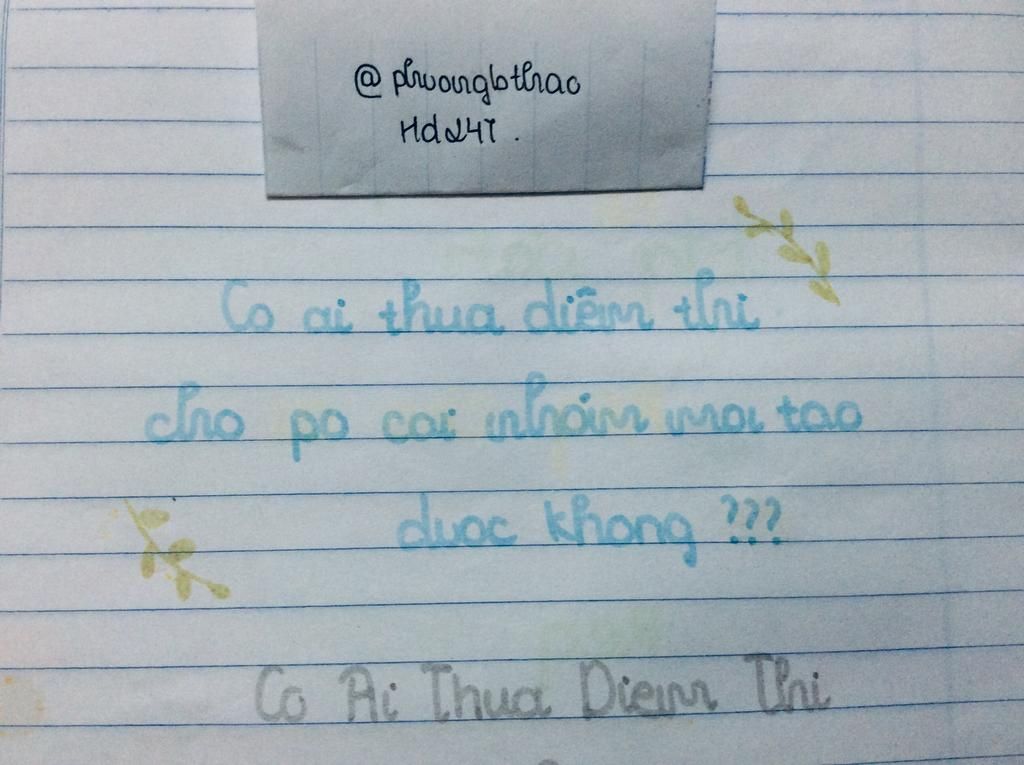 @ phuongbthao
Hd247.
Co ai thua diễm thi
cho po cai nhóm moi tao
duoc khong ???
Co Ai Thua Diem Thi